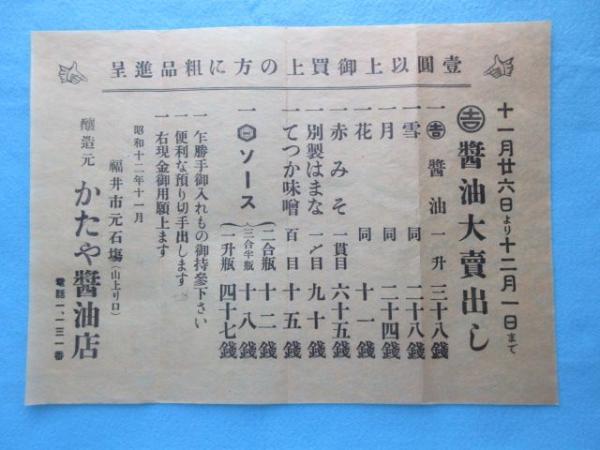 壹圓以上御買上の方に粗品進呈
十一月廿六日より十二月一日まで
㊂醬油大賣出し
一 醬油 一升 三十八錢
一雪 同 二十八錢
一月 同 二十四錢
一花 同 十一錢
一赤みそ 一貫目 六十五錢
一別製はまな 一〆目 九十錢
一てつか味噌 百目 十五錢
一 ソース
二合瓶 十二錢
三合半瓶 十八錢
一升瓶 四十七錢
一 乍勝手御入れもの御持參下さい
一 便利な預り切手出します
一 右現金御用願上ます
昭和十二年十一月
福井市元石塲(山上リ口)
釀造元 かたや醬油店
電話一、一三一番